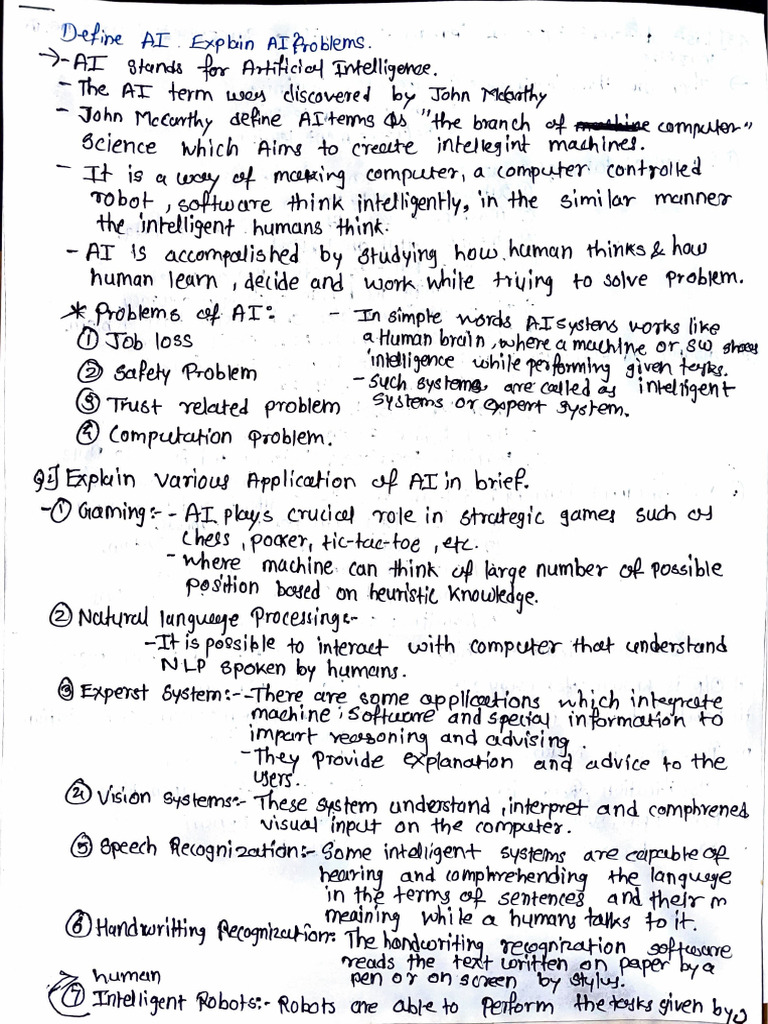 Define AI. Explain AI Problems.
→ - AI stands for Artificial Intelligence.
- The AI term was discovered by John McCarthy
- John McCarthy define AI terms as "the branch of computer"
Science which Aims to create intellegint machines.
- It is a way of making computer, a computer controlled
robot, software think intelligently, in the similar manner
the intelligent humans think.
- AI is accompalished by studying how human thinks & how
human learn, decide and work while trying to solve problem.
* Problems of AI:
① Job loss
② Safety Problem
③ Trust related problem
④ Computation problem.
- In simple words AI systems works like
a Human brain, where a machine or SW shows
intelligence while performing given tasks.
- Such systems are called as intelligent
systems or expert system.
Explain various Application of AI in brief.
- ① Gaming:- - AI plays crucial role in strategic games such as
chess, pocker, tic-tac-toe, etc.
- where machine can think of large number of possible
position based on heuristic knowledge.
② Natural language Processing:-
- It is possible to interact with computer that understand
NLP spoken by humans.
③ Experst System:- - There are some applications which integrate
machine, software and special information to
impart reasoning and advising.
- They provide explanation and advice to the
users.
④ Vision Systems:- These system understand, interpret and comphrened
visual input on the computer.
⑤ Speech Recognization:- Some intelligent systems are capable of
hearing and comphrehending the language
in the terms of sentences and their m
meaining while a humans talks to it.
⑥ Handwritting Recognization: The handwriting recognition software
reads the text written on paper by a
pen or on screen by stylus.
human
⑦ Intelligent Robots:- Robots are able to perform the tasks given by